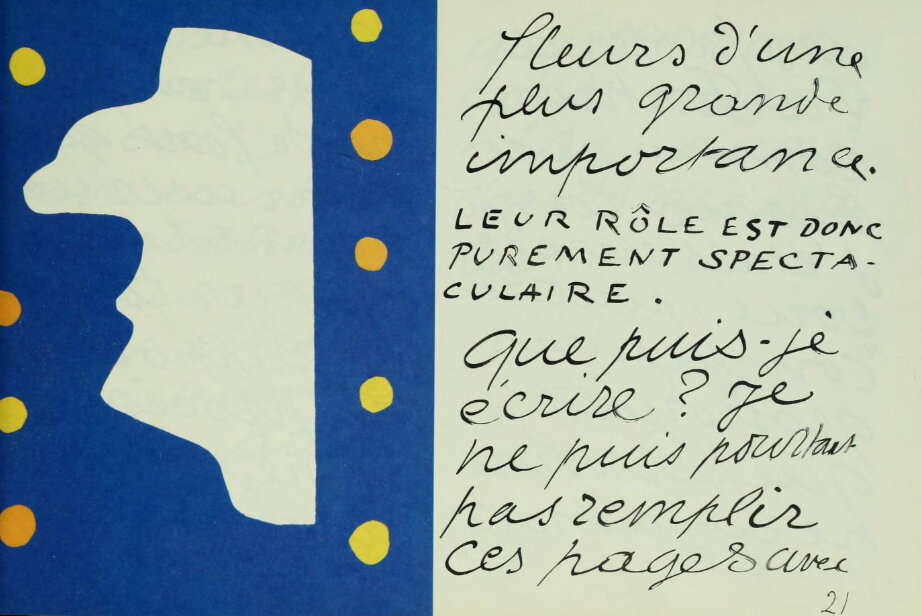 fleurs d'une
plus grande
importance.
LEUR RÔLE EST DONC
PUREMENT SPECTA-
CULAIRE.
Que puis-je
écrire ? Je
ne puis pourtant
pas remplir
ces pages avec
21